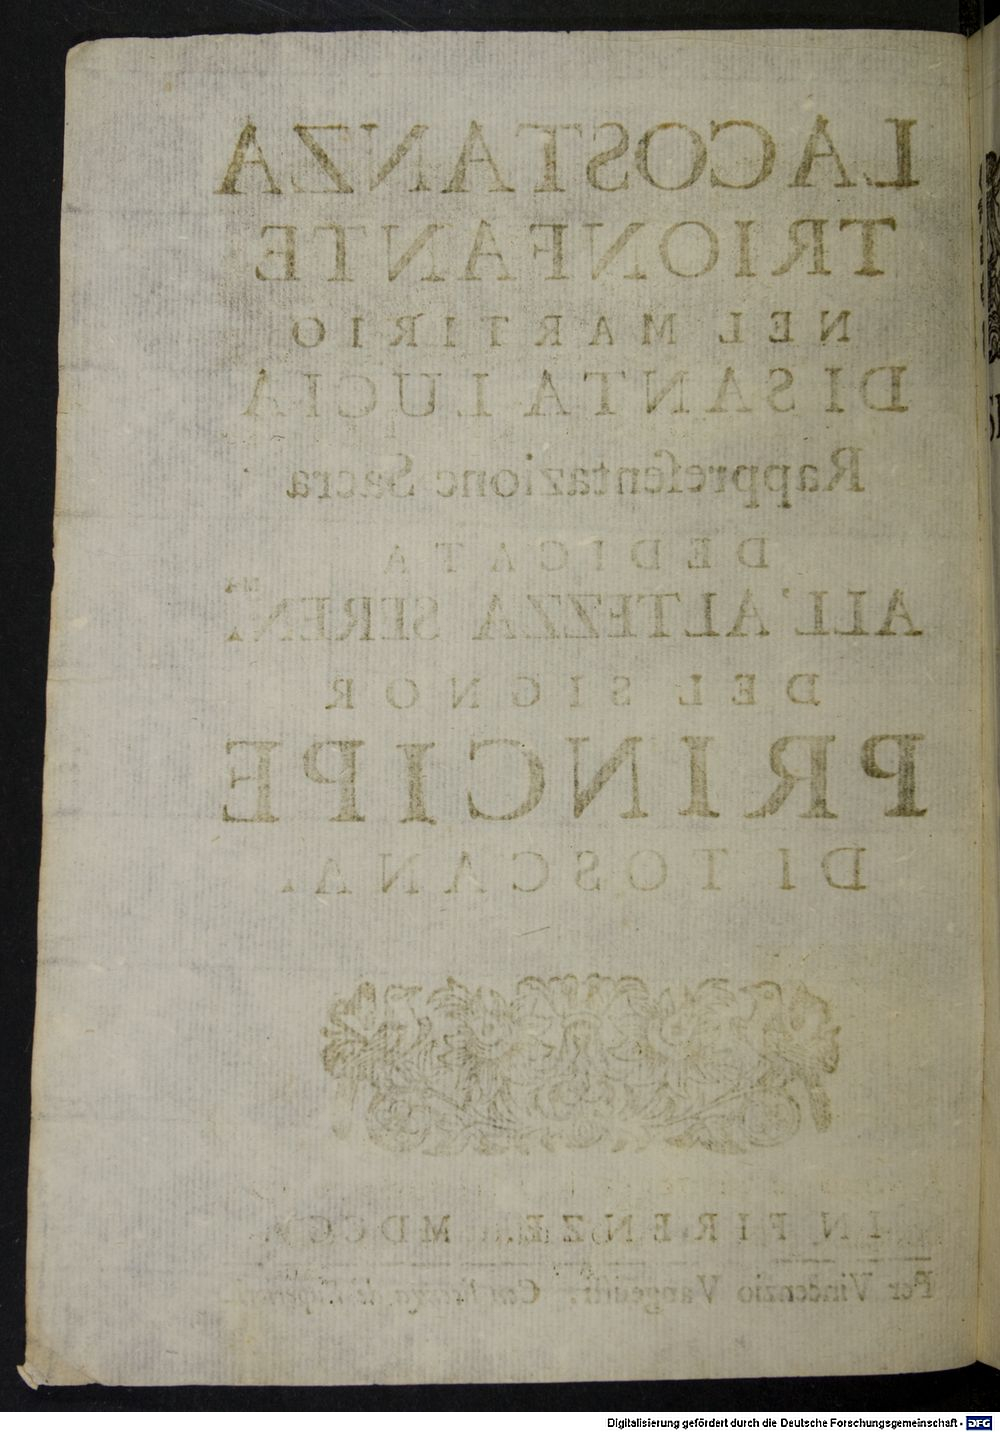 LA COSTANZA
TRIONFANTE
NEL MARTIRIO
DI SANTA LUCIA
Rappreſentazione Sacra
DEDICATA
ALL' ALTEZZA SEREN.MA
DEL SIGNOR
PRINCIPE
DI TOSCANA.
IN FIRENZE.
Per Vincenzio Vangelisti. Con licenza de' Superiori.
Digitalisierung gefördert durch die Deutsche Forschungsgemeinschaft - DFG